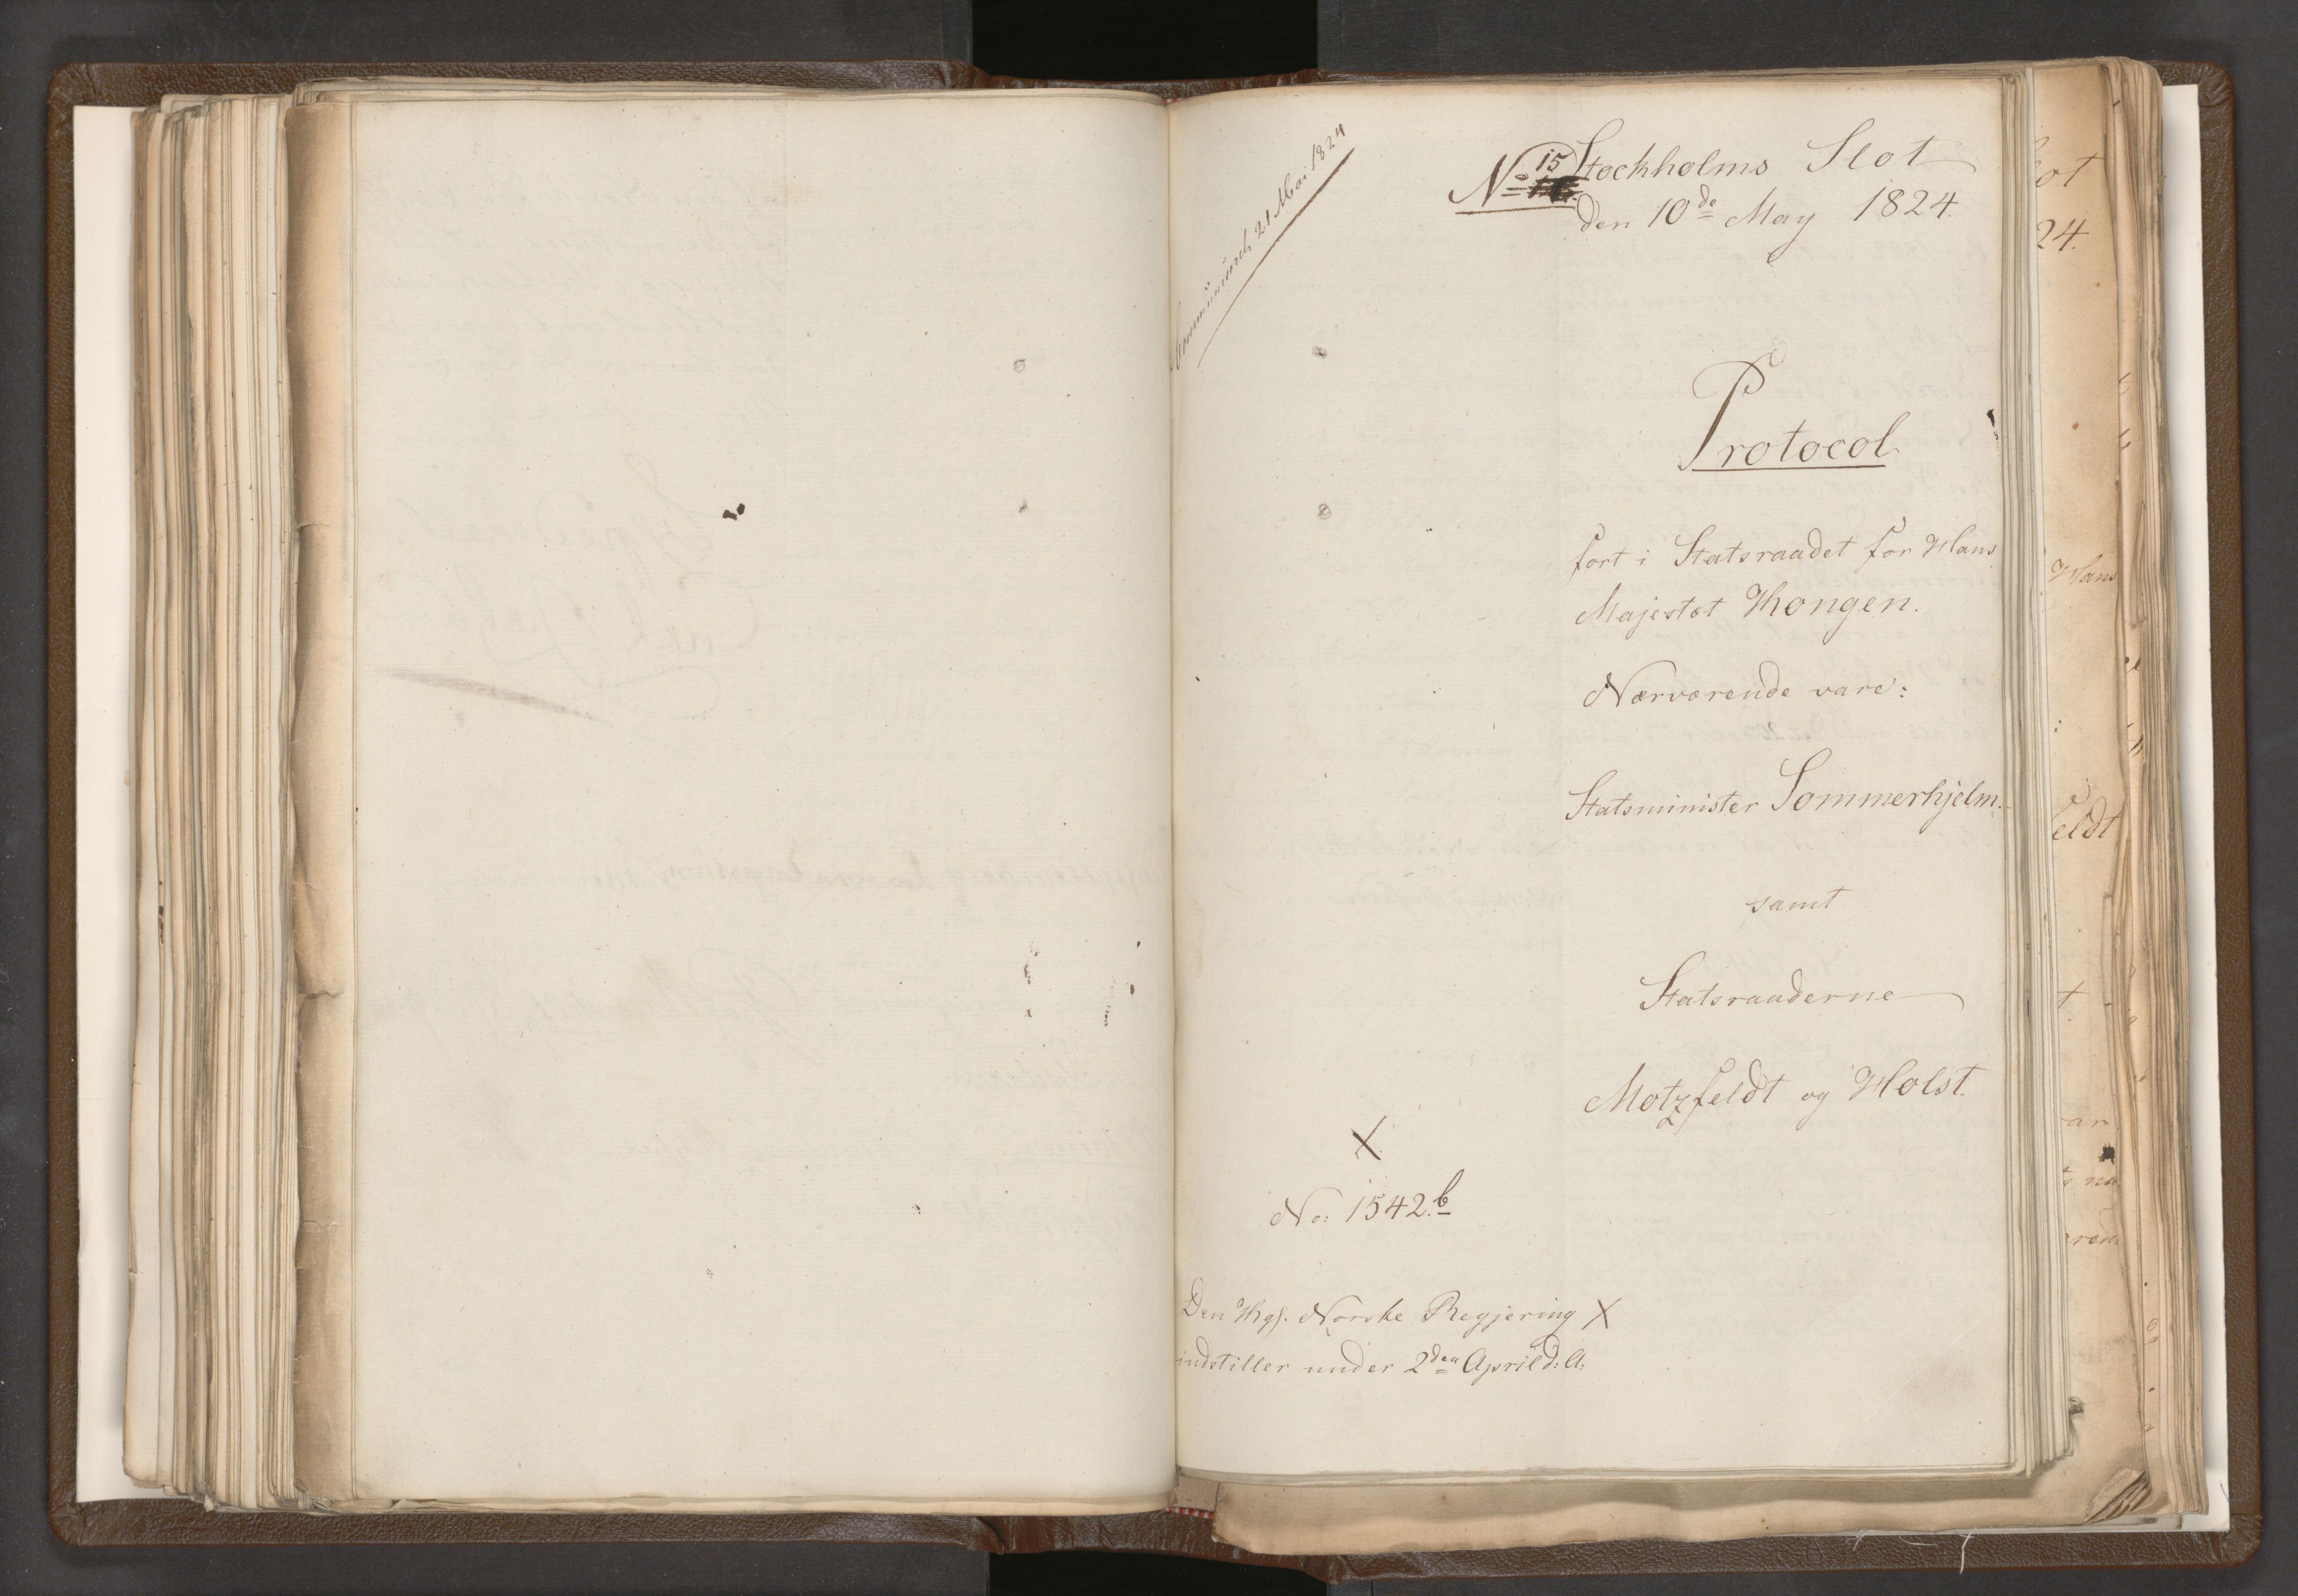 No 15
Stockholms Slot
den 10de May 1824.
21 Mai 1824
Protocol
fort i Statsraadet for Hans
Majestæt Kongen.
Nærværende vare:
Statsminister Sommerhjelm.
samt
Statsraaderne
Motzfeldt og Holst.
X
No: 1542.b
Den Kgl. Norske Regjering X
indstiller under 2den April d: A:
ot
24.
Hans
eldt